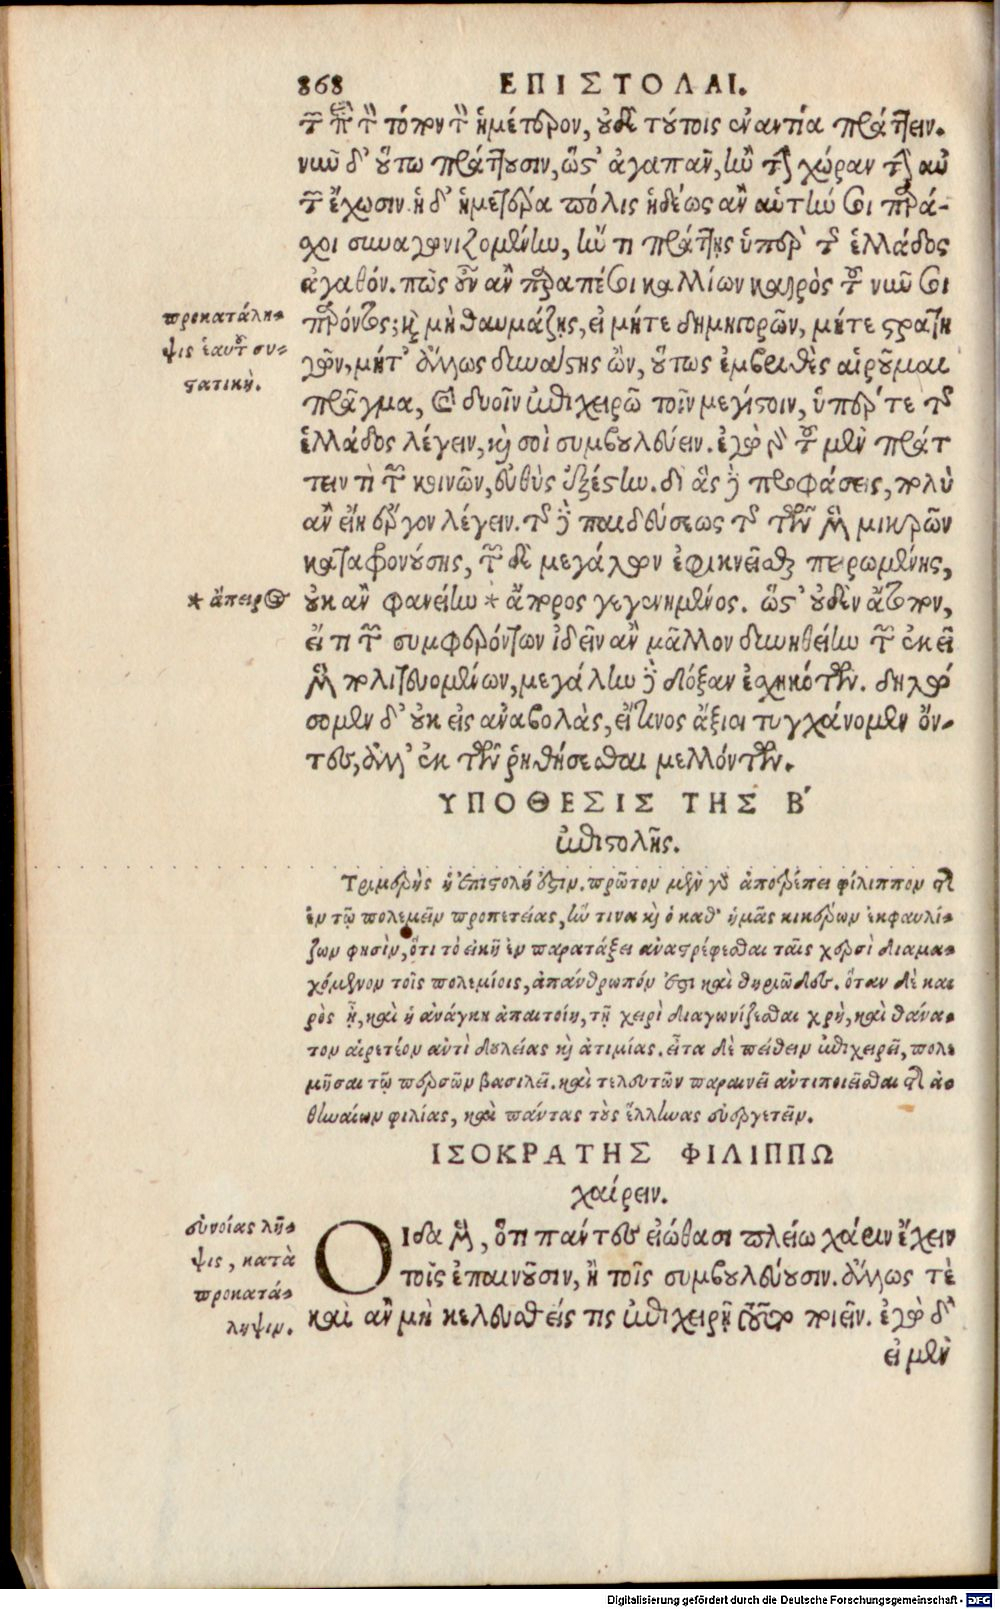 868 ΕΠΙΣΤΟΛΑΙ.
τῶν περὶ τὸν τόπον τὸν ἡμέτερον, οὐδὲ τούτοις ἐναντία πράττειν.
νῦν δ' οὕτω πράττουσιν, ὥστ' ἀγαπᾶν, ἢν τὴν χώραν τὴν αὑ
τῶν ἔχωσιν. ἡ δ' ἡμετέρα πόλις ἡδέως ἂν αὑτὴν σοι παρά-
σχοι συναγωνιζομένην, ἤν τι πράττῃς ὑπὲρ τῆς ἑλλάδος
ἀγαθόν. πῶς οὖν ἂν παραπέσοι καλλίων καιρὸς τοῦ νῦν σοι
παρόντος; καὶ μὴ θαυμάζῃς, εἰ μήτε δημηγορῶν, μήτε στρατη
γῶν, μήτ' ἄλλως δυνάστης ὢν, οὕτως ἐμβριθὲς αἱροῦμαι
πρᾶγμα, καὶ δυοῖν ἐπιχειρῶ τοῖν μεγίστοιν, ὑπέρ τε τῆς
ἑλλάδος λέγειν, καὶ σοὶ συμβουλεύειν. ἐγὼ γὰρ τοῦ μὲν πράτ
τειν τὶ τῶν κοινῶν, εὐθὺς ἐξέστην. δι ἃς δὲ προφάσεις, πολὺ
ἂν εἴη ἔργον λέγειν. τῆς δὲ παιδεύσεως τῆς τῶν μὲν μικρῶν
καταφρονούσης, τῶν δὲ μεγάλων ἐφικνεῖσθαι πειρωμένης,
οὐκ ἂν φανείην * ἄπορος γεγενημένος. ὥστ' οὐδὲν ἄτοπον,
εἴ τι τῶν συμφερόντων ἰδεῖν ἂν μᾶλλον δυνηθείην τῶν εἰκῆ
μὲν πολιτευομένων, μεγάλην δὲ δόξαν ἐχηκότων. δηλώ
σομεν δ' οὐκ εἰς ἀναβολὰς, εἴ τινος ἄξιοι τυγχάνομεν ὄν-
τες, ἀλλ' ἐκ τῶν ῥηθήσεσθαι μελλόντων.
προκατάλη-
ψις ἑαυτοῦ συ-
στατική.
* ἄπειρος
ΥΠΟΘΕΣΙΣ ΤΗΣ Β'
ἐπιστολῆς.
Τριμερὴς ἡ ἐπιστολή ἐστιν. πρῶτον μὲν γὰρ ἀποτρέπει φίλιππον τῆς
ἐν τῷ πολεμεῖν προπετείας, ἥν τινα καὶ ὁ καθ' ἡμᾶς κικέρων ἐκφαυλί-
ζων φησὶν, ὅτι τὸ εἰκῆ ἐν παρατάξει ἀναστρέφεσθαι ταῖς χερσὶ διαμα-
χόμενον τοῖς πολεμίοις, ἀπάνθρωπόν ἐστι καὶ θηριῶδες. ὅταν δὲ και
ρὸς ᾖ, καὶ ἡ ἀνάγκη ἀπαιτοίη, τῇ χειρὶ διαγωνίζεσθαι χρὴ, καὶ θάνα-
τον αἱρετέον ἀντὶ δουλείας καὶ ἀτιμίας. εἶτα δὲ πείθειν ἐπιχειρεῖ, πολε
μῆσαι τῷ περσῶν βασιλεῖ. καὶ τελευτῶν παραινεῖ ἀντιποιεῖσθαι τῆς ἀ-
θηναίων φιλίας, καὶ πάντας τοὺς ἕλληνας εὐεργετεῖν.
ΙΣΟΚΡΑΤΗΣ ΦΙΛΙΠΠΩ
χαίρειν.
εὐνοίας λῆ-
ψις, κατὰ
προκατά-
ληψιν.
ΟΙδα μὲν, ὅτι πάντες εἰώθασι πλείω χάριν ἔχειν
τοῖς ἐπαινοῦσιν, ἢ τοῖς συμβουλεύουσιν. ἄλλως τὲ
καὶ ἂν μὴ κελευσθείς τις ἐπιχειρῇ τοῦτο ποιεῖν. ἐγὼ δ'
εἰ μὲν
Digitalisierung gefördert durch die Deutsche Forschungsgemeinschaft - DFG